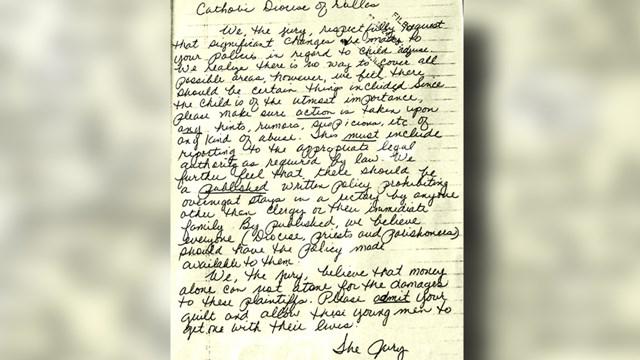 Catholic Diocese of Dallas
We, the jury, respectfully request
that significant changes be made to
your policies in regard to child abuse.
We realize there is no way to cover all
possible areas, however, we feel there
should be certain things included. Since
the child is of the utmost importance,
please make sure action is taken upon
any hints, rumors, suspicions, etc of
any kind of abuse. This must include
reporting to the appropriate legal
authority as required by law. We
further feel that there should be
a published written policy prohibiting
overnight stays in a rectory by anyone
other than clergy or their immediate
family. By published, we believe
everyone (Diocese, priests and parishoners)
should have the policy made
available to them.
We, the jury, believe that money
alone can not atone for the damages
to these plaintiffs. Please admit your
guilt and allow these young men to
get on with their lives.
The Jury